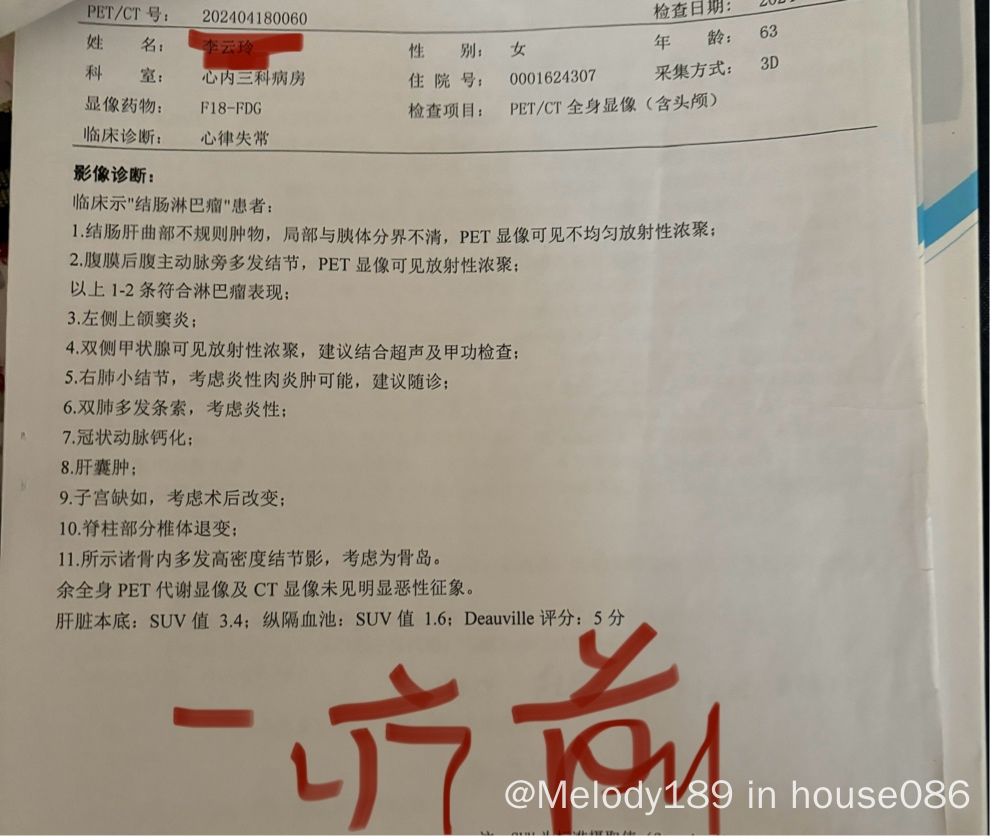 PET/CT 号： 202404180060 检查日期：
姓 名： 李云玲 性 别： 女 年 龄： 63
科 室： 心内三科病房 住 院 号： 0001624307 采集方式： 3D
显像药物： F18-FDG 检查项目： PET/CT 全身显像（含头颅）
临床诊断： 心律失常
影像诊断：
临床示"结肠淋巴瘤"患者；
1.结肠肝曲部不规则肿物，局部与胰体分界不清，PET 显像可见不均匀放射性浓聚；
2.腹膜后腹主动脉旁多发结节，PET 显像可见放射性浓聚；
以上 1-2 条符合淋巴瘤表现；
3.左侧上颌窦炎；
4.双侧甲状腺可见放射性浓聚，建议结合超声及甲功检查；
5.右肺小结节，考虑炎性肉炎肿可能，建议随诊；
6.双肺多发条索，考虑炎性；
7.冠状动脉钙化；
8.肝囊肿；
9.子宫缺如，考虑术后改变；
10.脊柱部分椎体退变；
11.所示诸骨内多发高密度结节影，考虑为骨岛。
余全身 PET 代谢显像及 CT 显像未见明显恶性征象。
肝脏本底：SUV 值 3.4；纵隔血池：SUV 值 1.6；Deauville 评分：5 分
一疗前
@Melody189 in house086